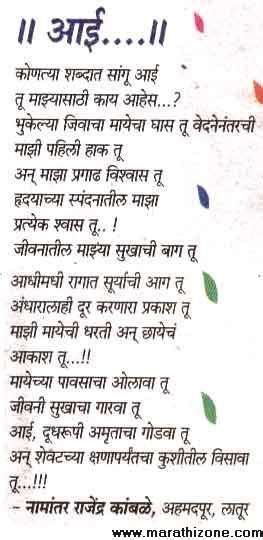 ॥ आई....॥
कोणत्या शब्दात सांगू आई
तू माझ्यासाठी काय आहेस...?
भुकेल्या जिवाचा मायेचा घास तू वेदनेनंतरची
माझी पहिली हाक तू
अन् माझा प्रगाढ विश्वास तू
हृदयाच्या स्पंदनातील माझा
प्रत्येक श्वास तू..!
जीवनातील माझ्या सुखाची बाग तू
आधीमधी रागात सूर्याची आग तू
अंधारालाही दूर करणारा प्रकाश तू
माझी मायेची धरती अन् छायेचं
आकाश तू...!!
मायेच्या पावसाचा ओलावा तू
जीवनी सुखाचा गारवा तू
आई, दूधरूपी अमृताचा गोडवा तू
अन् शेवटच्या क्षणापर्यंतचा कुशीतील विसावा
तू...!!!
– नामांतर राजेंद्र कांबळे, अहमदपूर, लातूर
www.marathizone.com